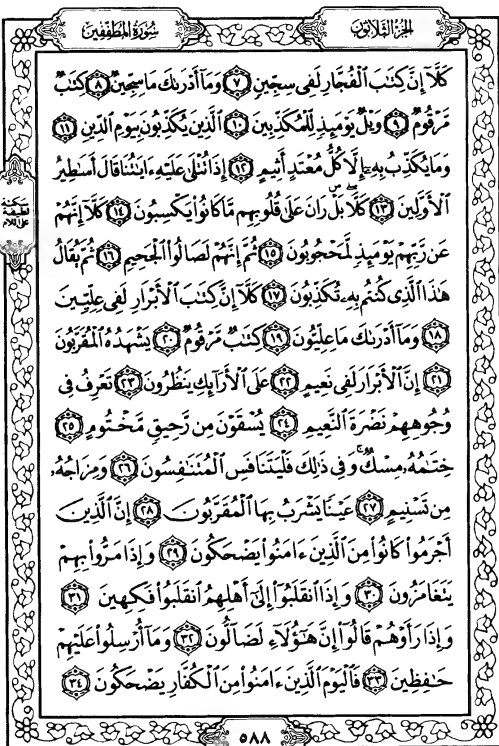 الجزء الثلاثون
سورة المطففين
كَلَّآ إِنَّ كِتَٰبَ ٱلْفُجَّارِ لَفِى سِجِّينٍ ٧ وَمَآ أَدْرَىٰكَ مَا سِجِّينٌ ٨ كِتَٰبٌ
مَّرْقُومٌ ٩ وَيْلٌ يَوْمَئِذٍ لِّلْمُكَذِّبِينَ ١٠ ٱلَّذِينَ يُكَذِّبُونَ بِيَوْمِ ٱلدِّينِ ١١
وَمَا يُكَذِّبُ بِهِۦٓ إِلَّا كُلُّ مُعْتَدٍ أَثِيمٍ ١٢ إِذَا تُتْلَىٰ عَلَيْهِ ءَايَٰتُنَا قَالَ أَسَٰطِيرُ
ٱلْأَوَّلِينَ ١٣ كَلَّا ۖ بَلْ ۜ رَانَ عَلَىٰ قُلُوبِهِم مَّا كَانُوا۟ يَكْسِبُونَ ١٤ كَلَّآ إِنَّهُمْ
عَن رَّبِّهِمْ يَوْمَئِذٍ لَّمَحْجُوبُونَ ١٥ ثُمَّ إِنَّهُمْ لَصَالُوا۟ ٱلْجَحِيمِ ١٦ ثُمَّ يُقَالُ
هَٰذَا ٱلَّذِى كُنتُم بِهِۦ تُكَذِّبُونَ ١٧ كَلَّآ إِنَّ كِتَٰبَ ٱلْأَبْرَارِ لَفِى عِلِّيِّينَ
١٨ وَمَآ أَدْرَىٰكَ مَا عِلِّيُّونَ ١٩ كِتَٰبٌ مَّرْقُومٌ ٢٠ يَشْهَدُهُ ٱلْمُقَرَّبُونَ
٢١ إِنَّ ٱلْأَبْرَارَ لَفِى نَعِيمٍ ٢٢ عَلَى ٱلْأَرَآئِكِ يَنظُرُونَ ٢٣ تَعْرِفُ فِى
وُجُوهِهِمْ نَضْرَةَ ٱلنَّعِيمِ ٢٤ يُسْقَوْنَ مِن رَّحِيقٍ مَّخْتُومٍ ٢٥
خِتَٰمُهُۥ مِسْكٌ ۚ وَفِى ذَٰلِكَ فَلْيَتَنَافَسِ ٱلْمُتَنَٰفِسُونَ ٢٦ وَمِزَاجُهُۥ
مِن تَسْنِيمٍ ٢٧ عَيْنًا يَشْرَبُ بِهَا ٱلْمُقَرَّبُونَ ٢٨ إِنَّ ٱلَّذِينَ
أَجْرَمُوا۟ كَانُوا۟ مِنَ ٱلَّذِينَ ءَامَنُوا۟ يَضْحَكُونَ ٢٩ وَإِذَا مَرُّوا۟ بِهِمْ
يَتَغَامَزُونَ ٣٠ وَإِذَا ٱنقَلَبُوٓا۟ إِلَىٰٓ أَهْلِهِمُ ٱنقَلَبُوا۟ فَكِهِينَ ٣١
وَإِذَا رَأَوْهُمْ قَالُوٓا۟ إِنَّ هَٰٓؤُلَآءِ لَضَآلُّونَ ٣٢ وَمَآ أُرْسِلُوا۟ عَلَيْهِمْ
حَٰفِظِينَ ٣٣ فَٱلْيَوْمَ ٱلَّذِينَ ءَامَنُوا۟ مِنَ ٱلْكُفَّارِ يَضْحَكُونَ ٣٤
سكتة
لطيفة
على اللام
٥٨٨